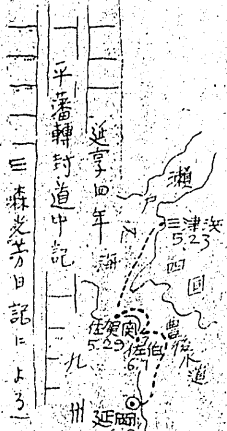 延享四年
平藩轉封道中記
三森光芳日記による
瀬戸内海
三津浜
5.23
四国
佐賀関
5.29
佐伯
6.7
豊後水道
九州
延岡